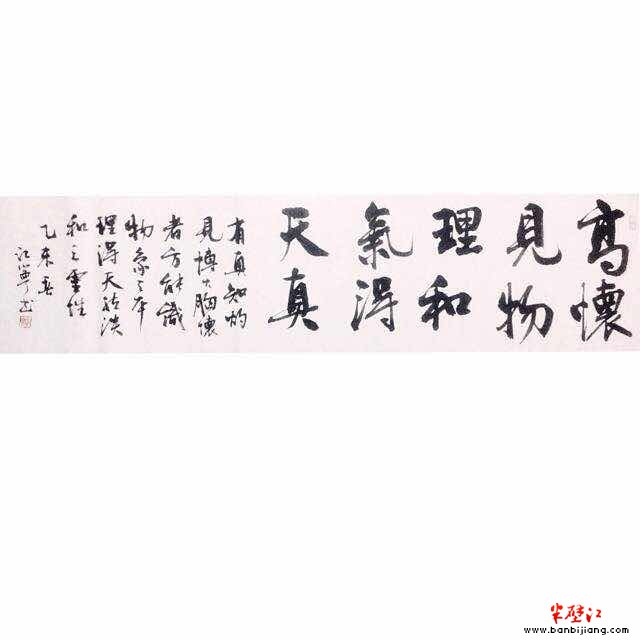 高懷
見物
理和
氣得
天真
有真知灼
見博大胸懷
者方能識
物象之本
理得天然淡
和之靈性
乙未春
江寧書
半壁江
www.banbijiang.com